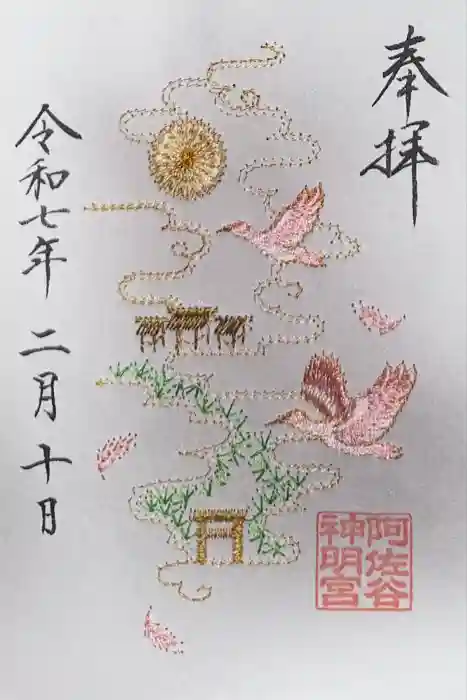 奉拝
阿佐谷
神明宮
令和七年 二月十日